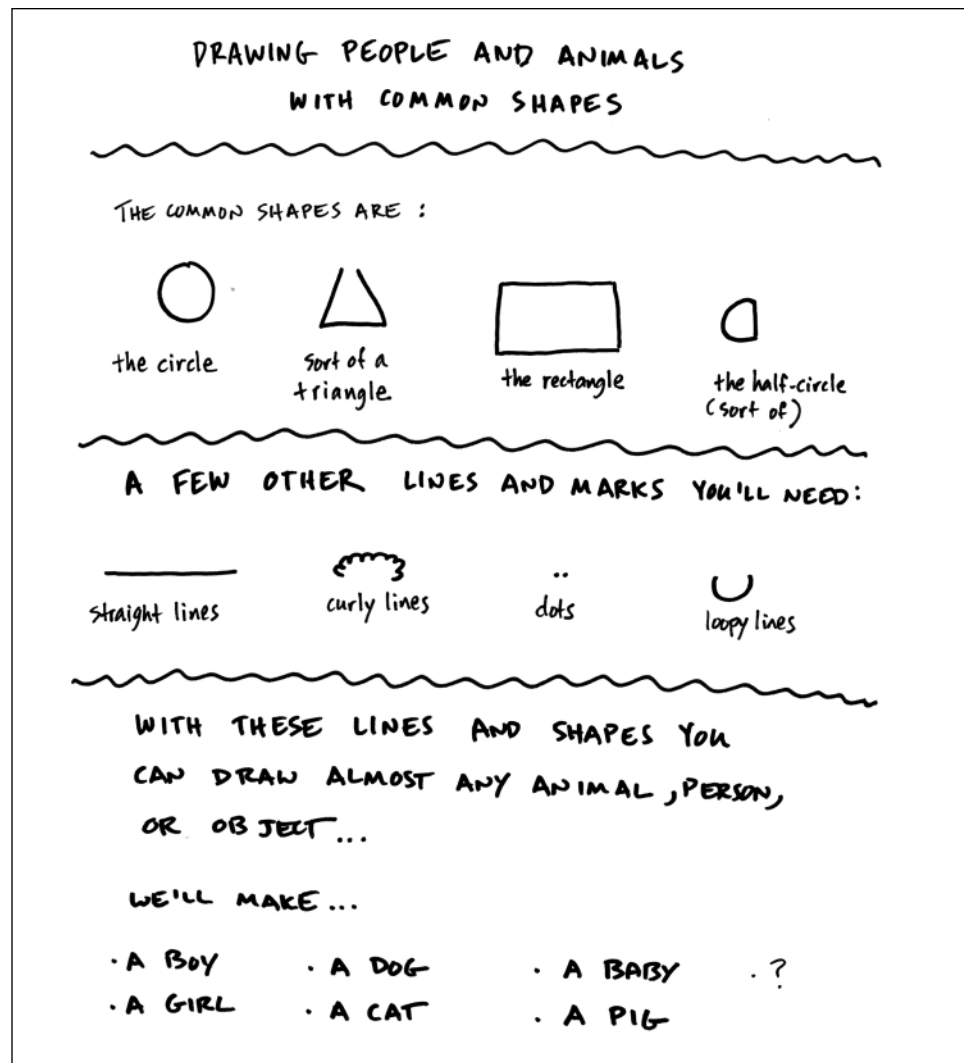 DRAWING PEOPLE AND ANIMALS
WITH COMMON SHAPES
THE COMMON SHAPES ARE :
the circle
sort of a
triangle
the rectangle
the half-circle
(sort of)
A FEW OTHER LINES AND MARKS YOU'LL NEED:
straight lines
curly lines
dots
loopy lines
WITH THESE LINES AND SHAPES YOU
CAN DRAW ALMOST ANY ANIMAL, PERSON,
OR OBJECT...
WE'LL MAKE...
· A BOY · A DOG · A BABY · ?
· A GIRL · A CAT · A PIG